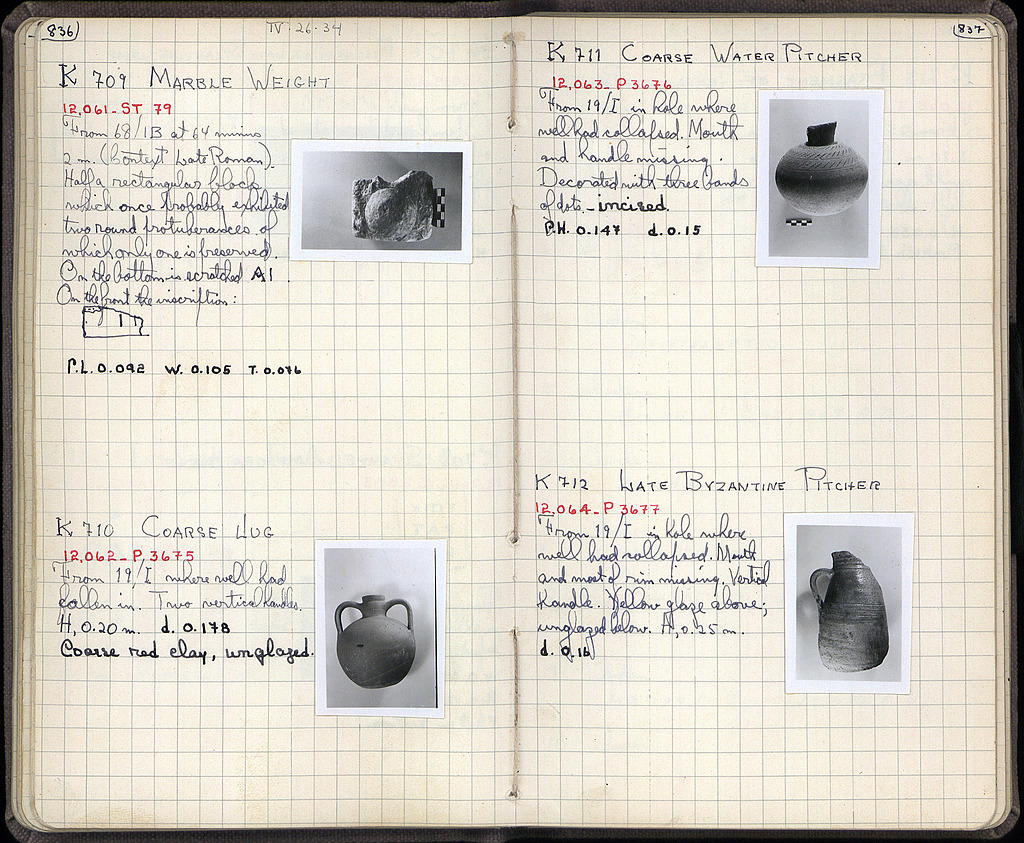 836
IV-26-34
K 709 MARBLE WEIGHT
12,061-ST 79
From 68/IB at 64 minus
2 m. (Context Late Roman).
Half a rectangular block
which once probably exhibited
two round protuberances of
which only one is preserved.
On the bottom is scratched AI.
On the front the inscription:
P.L. 0.092 W. 0.105 T. 0.076
K 710 COARSE JUG
12,062-P 3675
From 19/I where well had
fallen in. Two vertical handles.
H, 0.20 m. d. 0.178
Coarse red clay, unglazed.
837
K 711 COARSE WATER PITCHER
12,063-P 3676
From 19/I in hole where
well had collapsed. Mouth
and handle missing.
Decorated with three bands
of dots - incised.
P.H. 0.147 d. 0.15
K 712 LATE BYZANTINE PITCHER
12,064-P 3677
From 19/I in hole where
well had collapsed. Mouth
and most of rim missing. Vertical
handle. Yellow glaze above;
unglazed below. H, 0.25 m.
d. 0.16